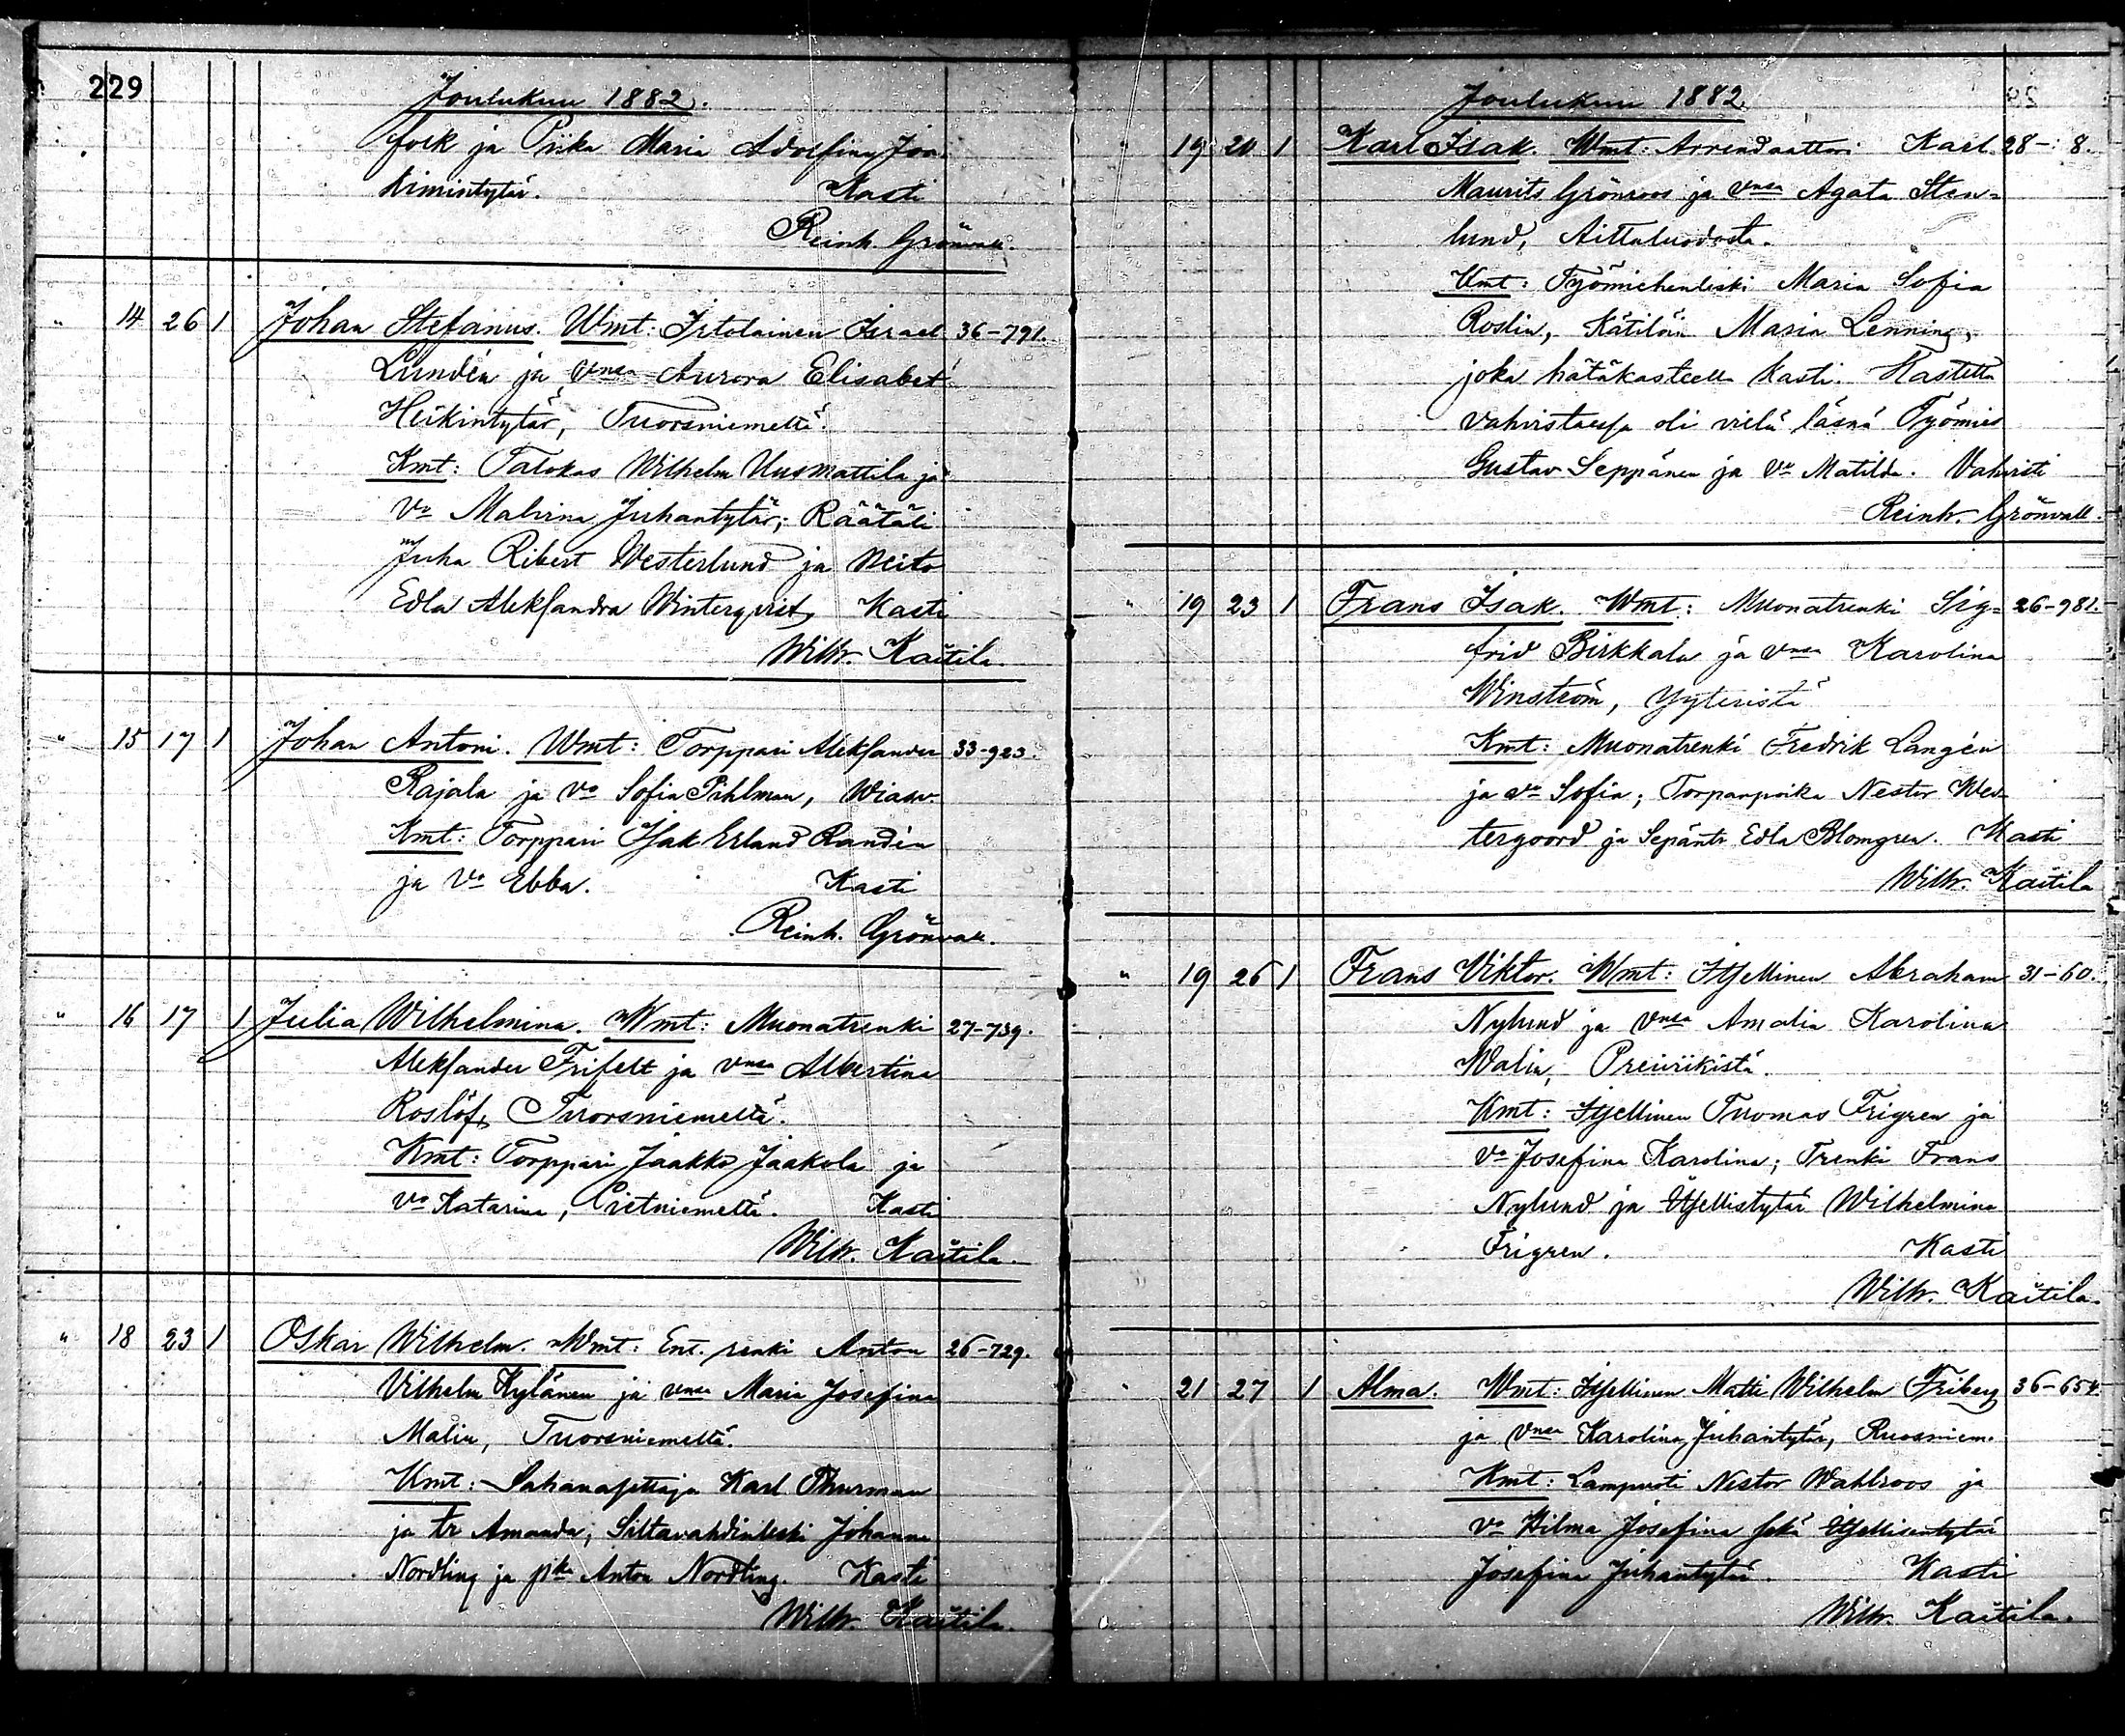 229
Joulukuu 1882.
folk ja Piika Maria Adolfina Joa-
kimintytär. Kasti
Reinh. Grönvall.
" 14 26 1 Johan Stefanus. Wmt: Irtolainen Israel 36-791.
Lundén ja vnsa Aurora Elisabet
Heikintytär, Tuorsniemeltä.
Kmt: Talokas Wilhelm Uusmattila ja
Vo Malvina Juhantytär; Räätäli
Juha Ribert Westerlund ja Neito
Edla Aleksandra Winterqvist, Kasti
Wilh. Kaitila.
" 15 17 1 Johan Antoni. Wmt: Torppari Aleksander 33-923.
Rajala ja Vo Sofia Pihlman,
Kmt: Torppari Isak Erland Randén
ja Vo Ebba. Kasti
Reinh. Grönvall.
" 16 17 1 Julia Wilhelmina. Wmt: Muonatrenki 27-739.
Aleksander Frifelt ja vnsa Albertina
Roslöf, Tuorsniemeltä.
Kmt: Torppari Jaakko Jaakola ja
Vo Katarina, Pietniemeltä. Kasti
Wilh. Kaitila.
" 18 23 1 Oskar Wilhelm. Wmt: Ent. renki Anton 26-729.
Vilhelm Kylänen ja vnsa Maria Josefina
Malin, Tuorsniemeltä.
Kmt: Sahanasettaja Karl Thurman
ja tr Amanda; Siltavahdinleski Johanna
Nordling ja pka Anton Nordling. Kasti
Wilh. Kaitila.
Joulukuu 1882.
" 19 20 1 Karl Isak. Wmt: Arrendaattori Karl 28-: 8.
Maurits Grönroos ja vnsa Agata Sten-
lund, Aittaluodosta.
Kmt: Työmiehenleski Maria Sofia
Roslin, Kätilöin Maria Lenning,
joka hätäkasteella kasti. Kastetta
vahvistaessa oli vielä läsnä Työmies
Gustav Seppänen ja Vo Matilda. Vahvisti
Reinh. Grönvall.
" 19 23 1 Frans Isak. Wmt: Muonatrenki Sig- 26-981.
frid Birkkala ja vnsa Karolina
Winström, Yyteristä
Kmt: Muonatrenki Fredrik Langén
ja vo Sofia; Torparpoika Nestor Wes-
tergoord ja Sepäntr Edla Blomgren. Kasti
Wilh. Kaitila
" 19 26 1 Frans Viktor. Wmt: Itsellinen Abraham 31-60.
Nylund ja vnsa Amalia Karolina
Walin, Preiviikistä.
Kmt: Itsellinen Tuomas Frigren ja
Vo Josefina Karolina; Trenki Frans
Nylund ja Itsellistytär Wilhelmina
Frigren. Kasti
Wilh. Kaitila.
" 21 27 1 Alma. Wmt: Itsellinen Matti Wilhelm Friberg 36-654.
ja vnsa Karolina Juhantytär, Ruosniem.
Kmt: Lampuoti Nestor Wahlroos ja
Vo Hilma Josefina sekä Itsellisentytär
Josefina Juhantytär. Kasti
Wilh. Kaitila.